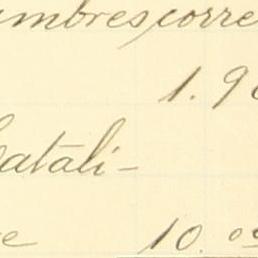 umbres, corre
1.9
atali-
e 10.00